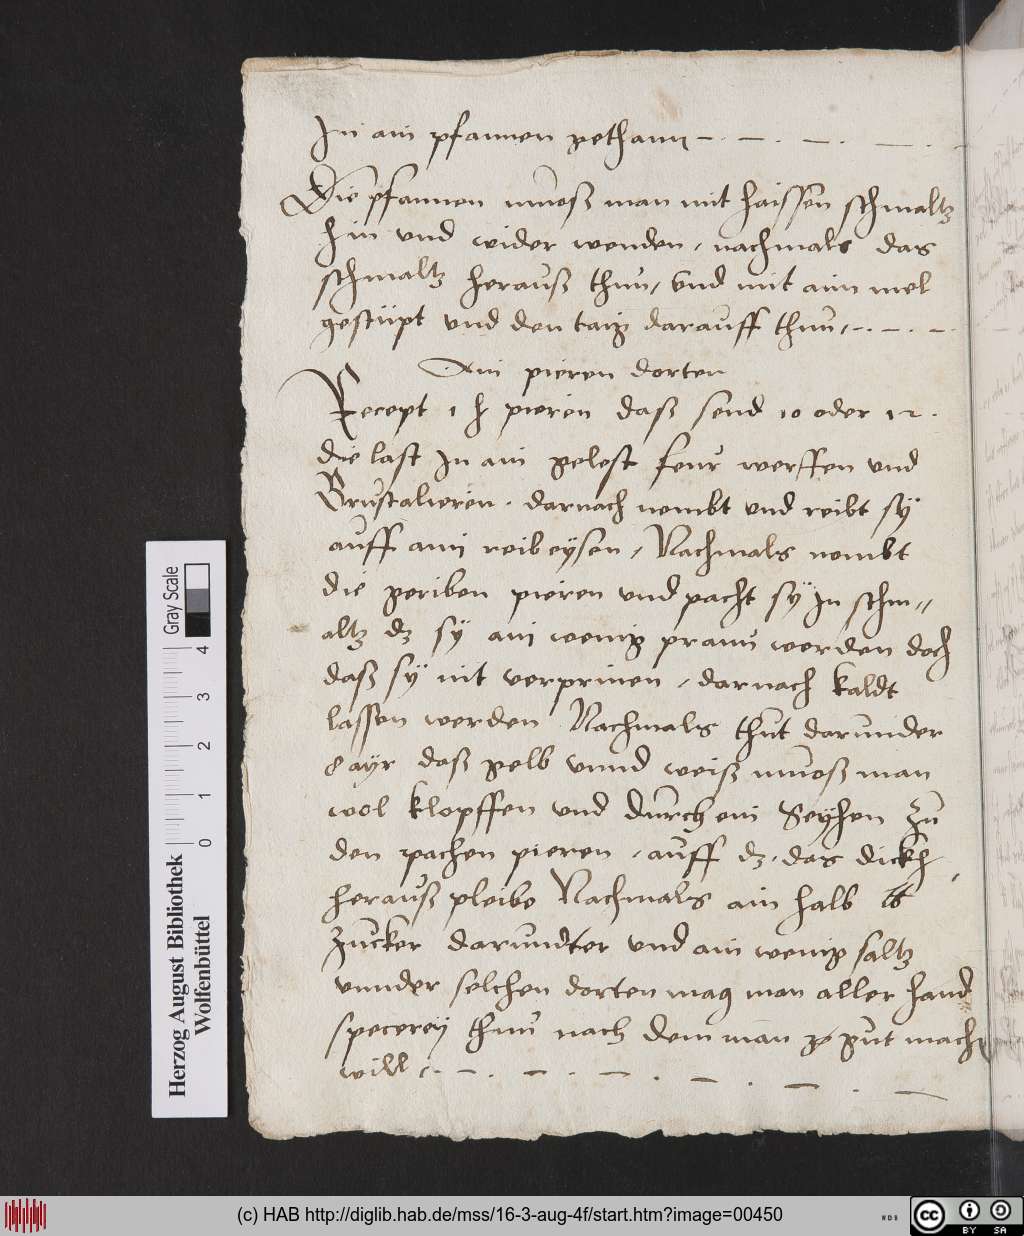 In ain pfannen gethann – . – . – . – .
Die pfannen muoß man mit haissen schmaltz
hin vnd wider wenden, nachmals das
schmaltz herauß thun, vnd mit aim mel
gestüpt vnd den taig darauff thun, – . – . –
Ain pieren dorten
Recept 1 h pieren daß send 10 oder 12 .
die last In ain gelest feur werffen vnd
Brustalieren . darnach nembt vnd reibt sÿ
auff aim reibeysen, Nachmals nembt
die geriben pieren vnd pacht sÿ In schm=
altz dz sÿ ain wenig praun werden doch
daß sÿ nit verprinen, darnach kaldt
lassen werden Nachmals thut darunder
8 ayr daß gelb vnnd weiß muoß man
wol klopffen vnd durch ein Seyhen Zu
den pachen pieren, auff dz, das dickh
herauß pleibe Nachmals ain halb lb
Zucker darundter vnd ain wenig saltz
vnnder solchen dorten mag man aller hand
specereÿ thun nach dem man gut mach
will, . – . – . – . – . – . –
Gray Scale
0 1 2 3 4
Herzog August Bibliothek
Wolfenbüttel
(c) HAB http://diglib.hab.de/mss/16-3-aug-4f/start.htm?image=00450
WDB
cc BY SA